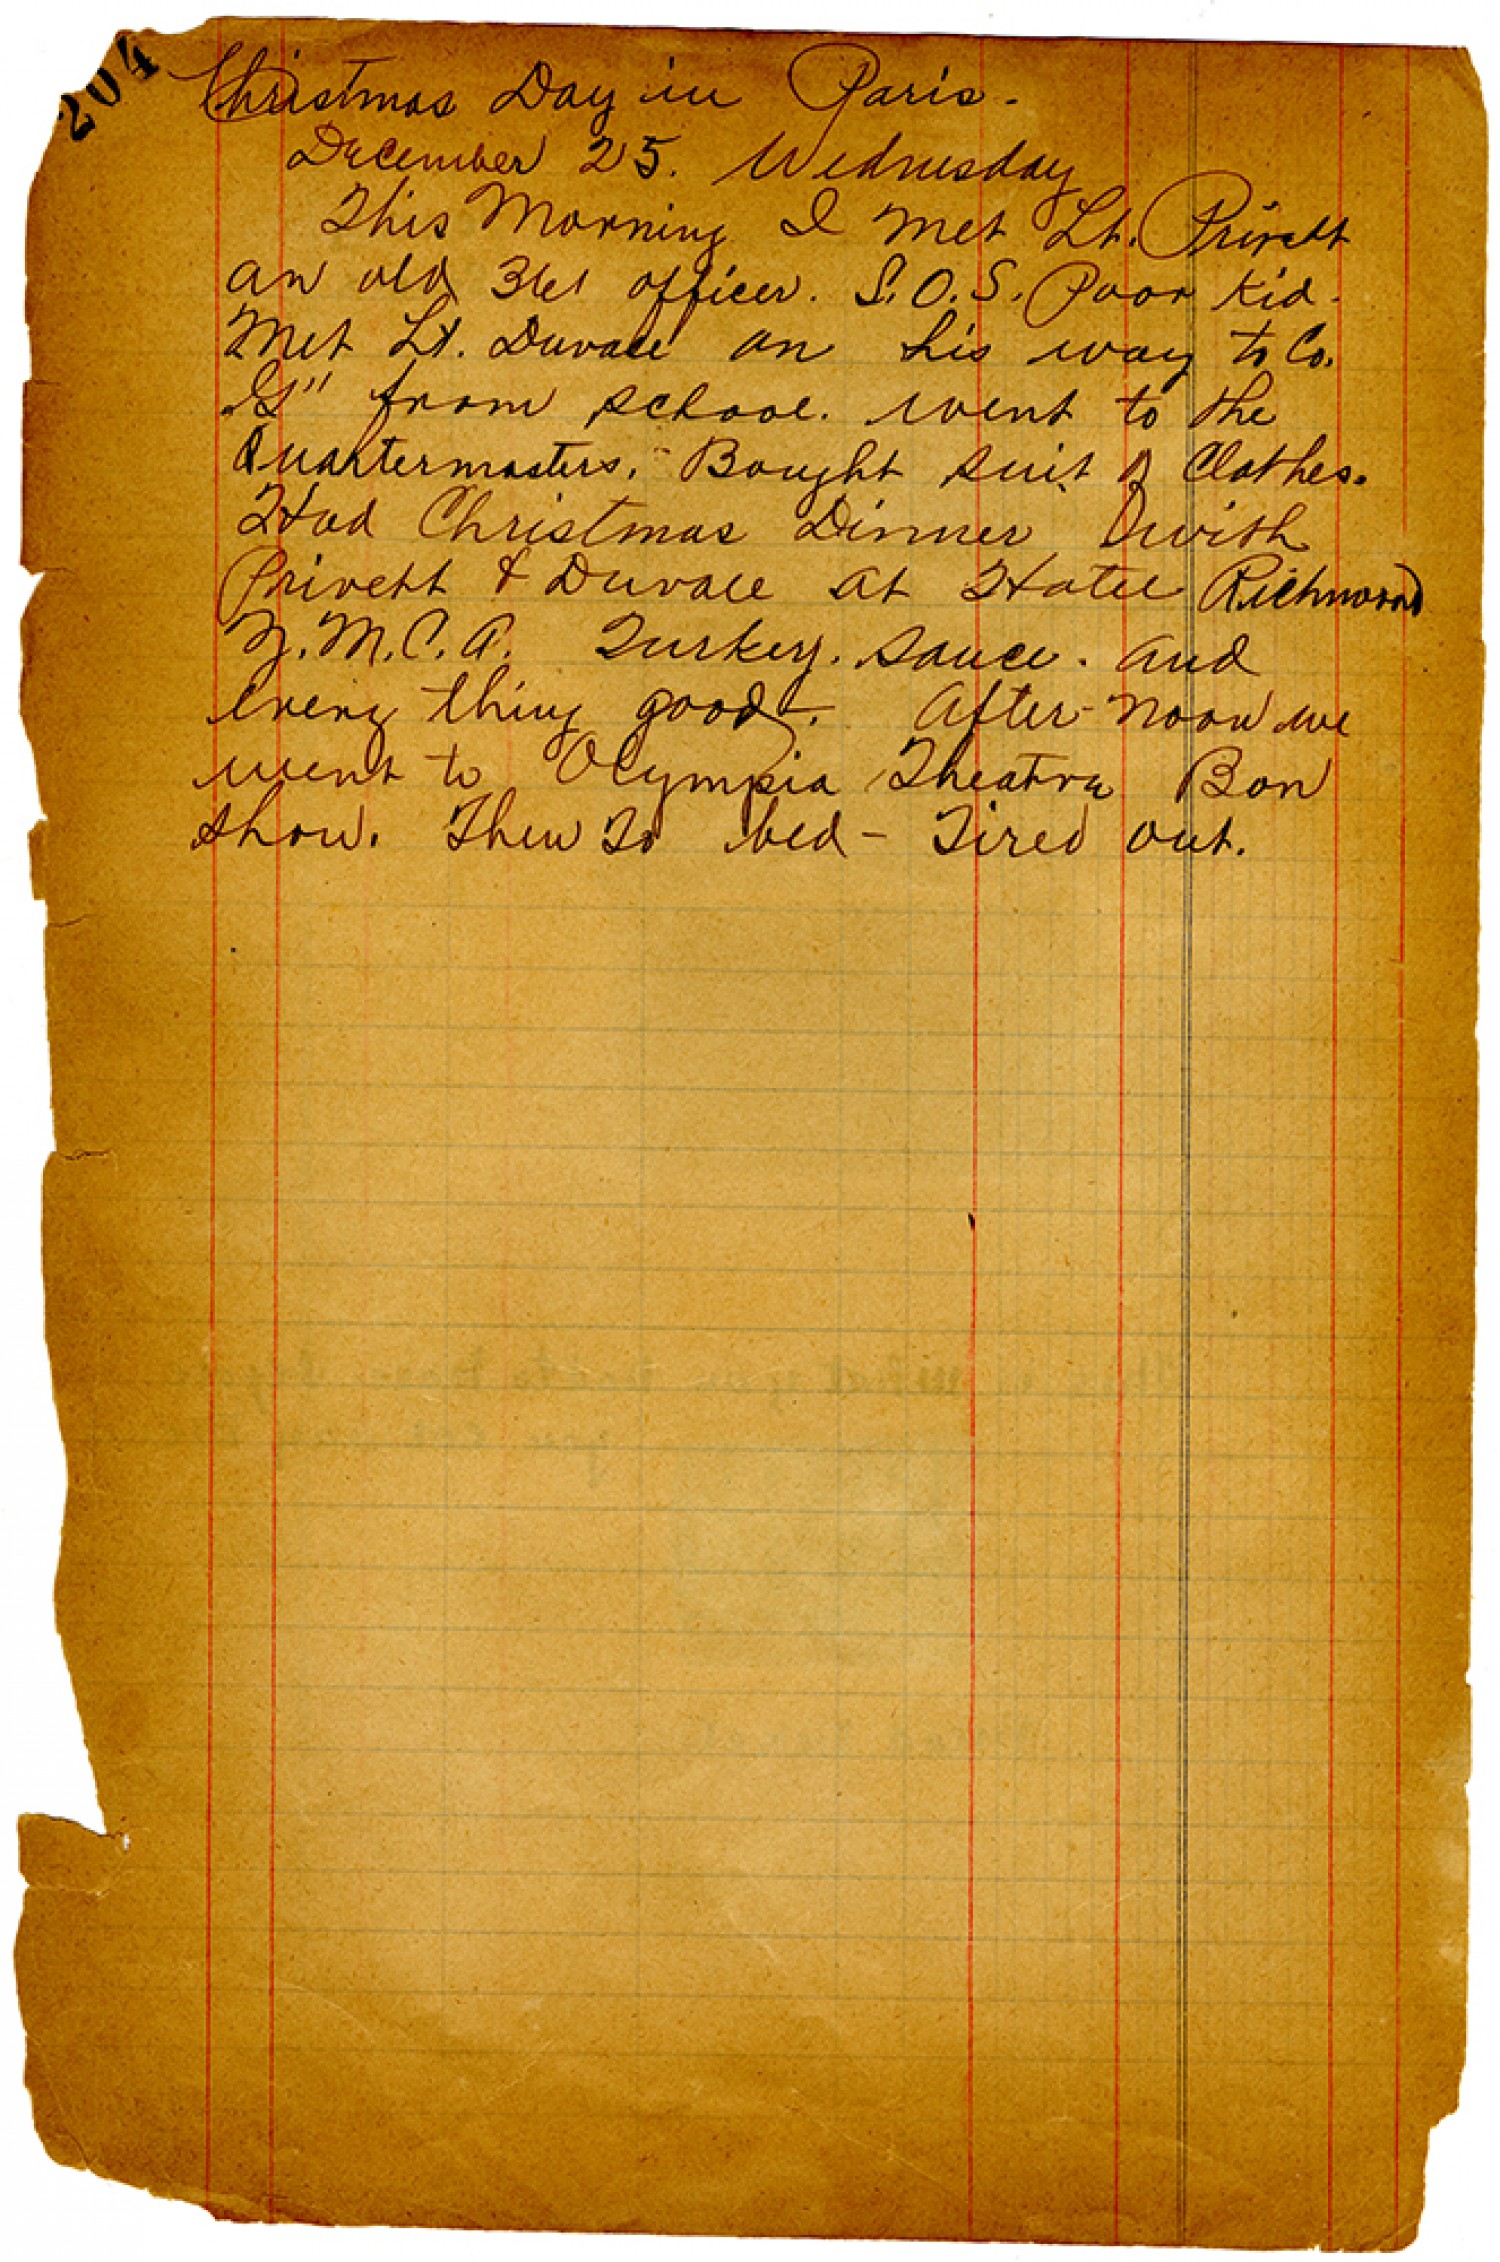 204
Christmas Day in Paris.
December 25. Wednesday
This Morning I met Lt. Privett
an old 361 officer. S.O.S. Poor kid.
Met Lt. Duvall on his way to Co.
"G" from school. went to the
Quartermasters. Bought suit of Clothes.
Had Christmas Dinner with
Privett & Duvall at Hotel Richmond
Y.M.C.A. Turkey. Sauce. and
every thing good. After-noon we
went to Olympia Theatre Bon
show. Then to bed - Tired out.